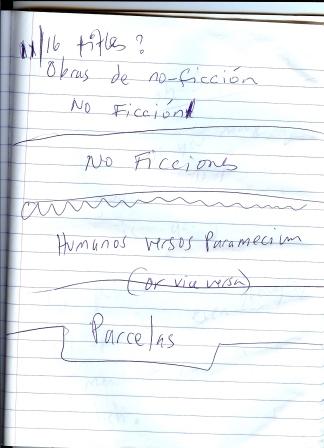 11/16 titles?
Obras de no-ficción
No Ficción
No Ficciones
Humanos versos Paramecium
(or vice versa)
Parcelas